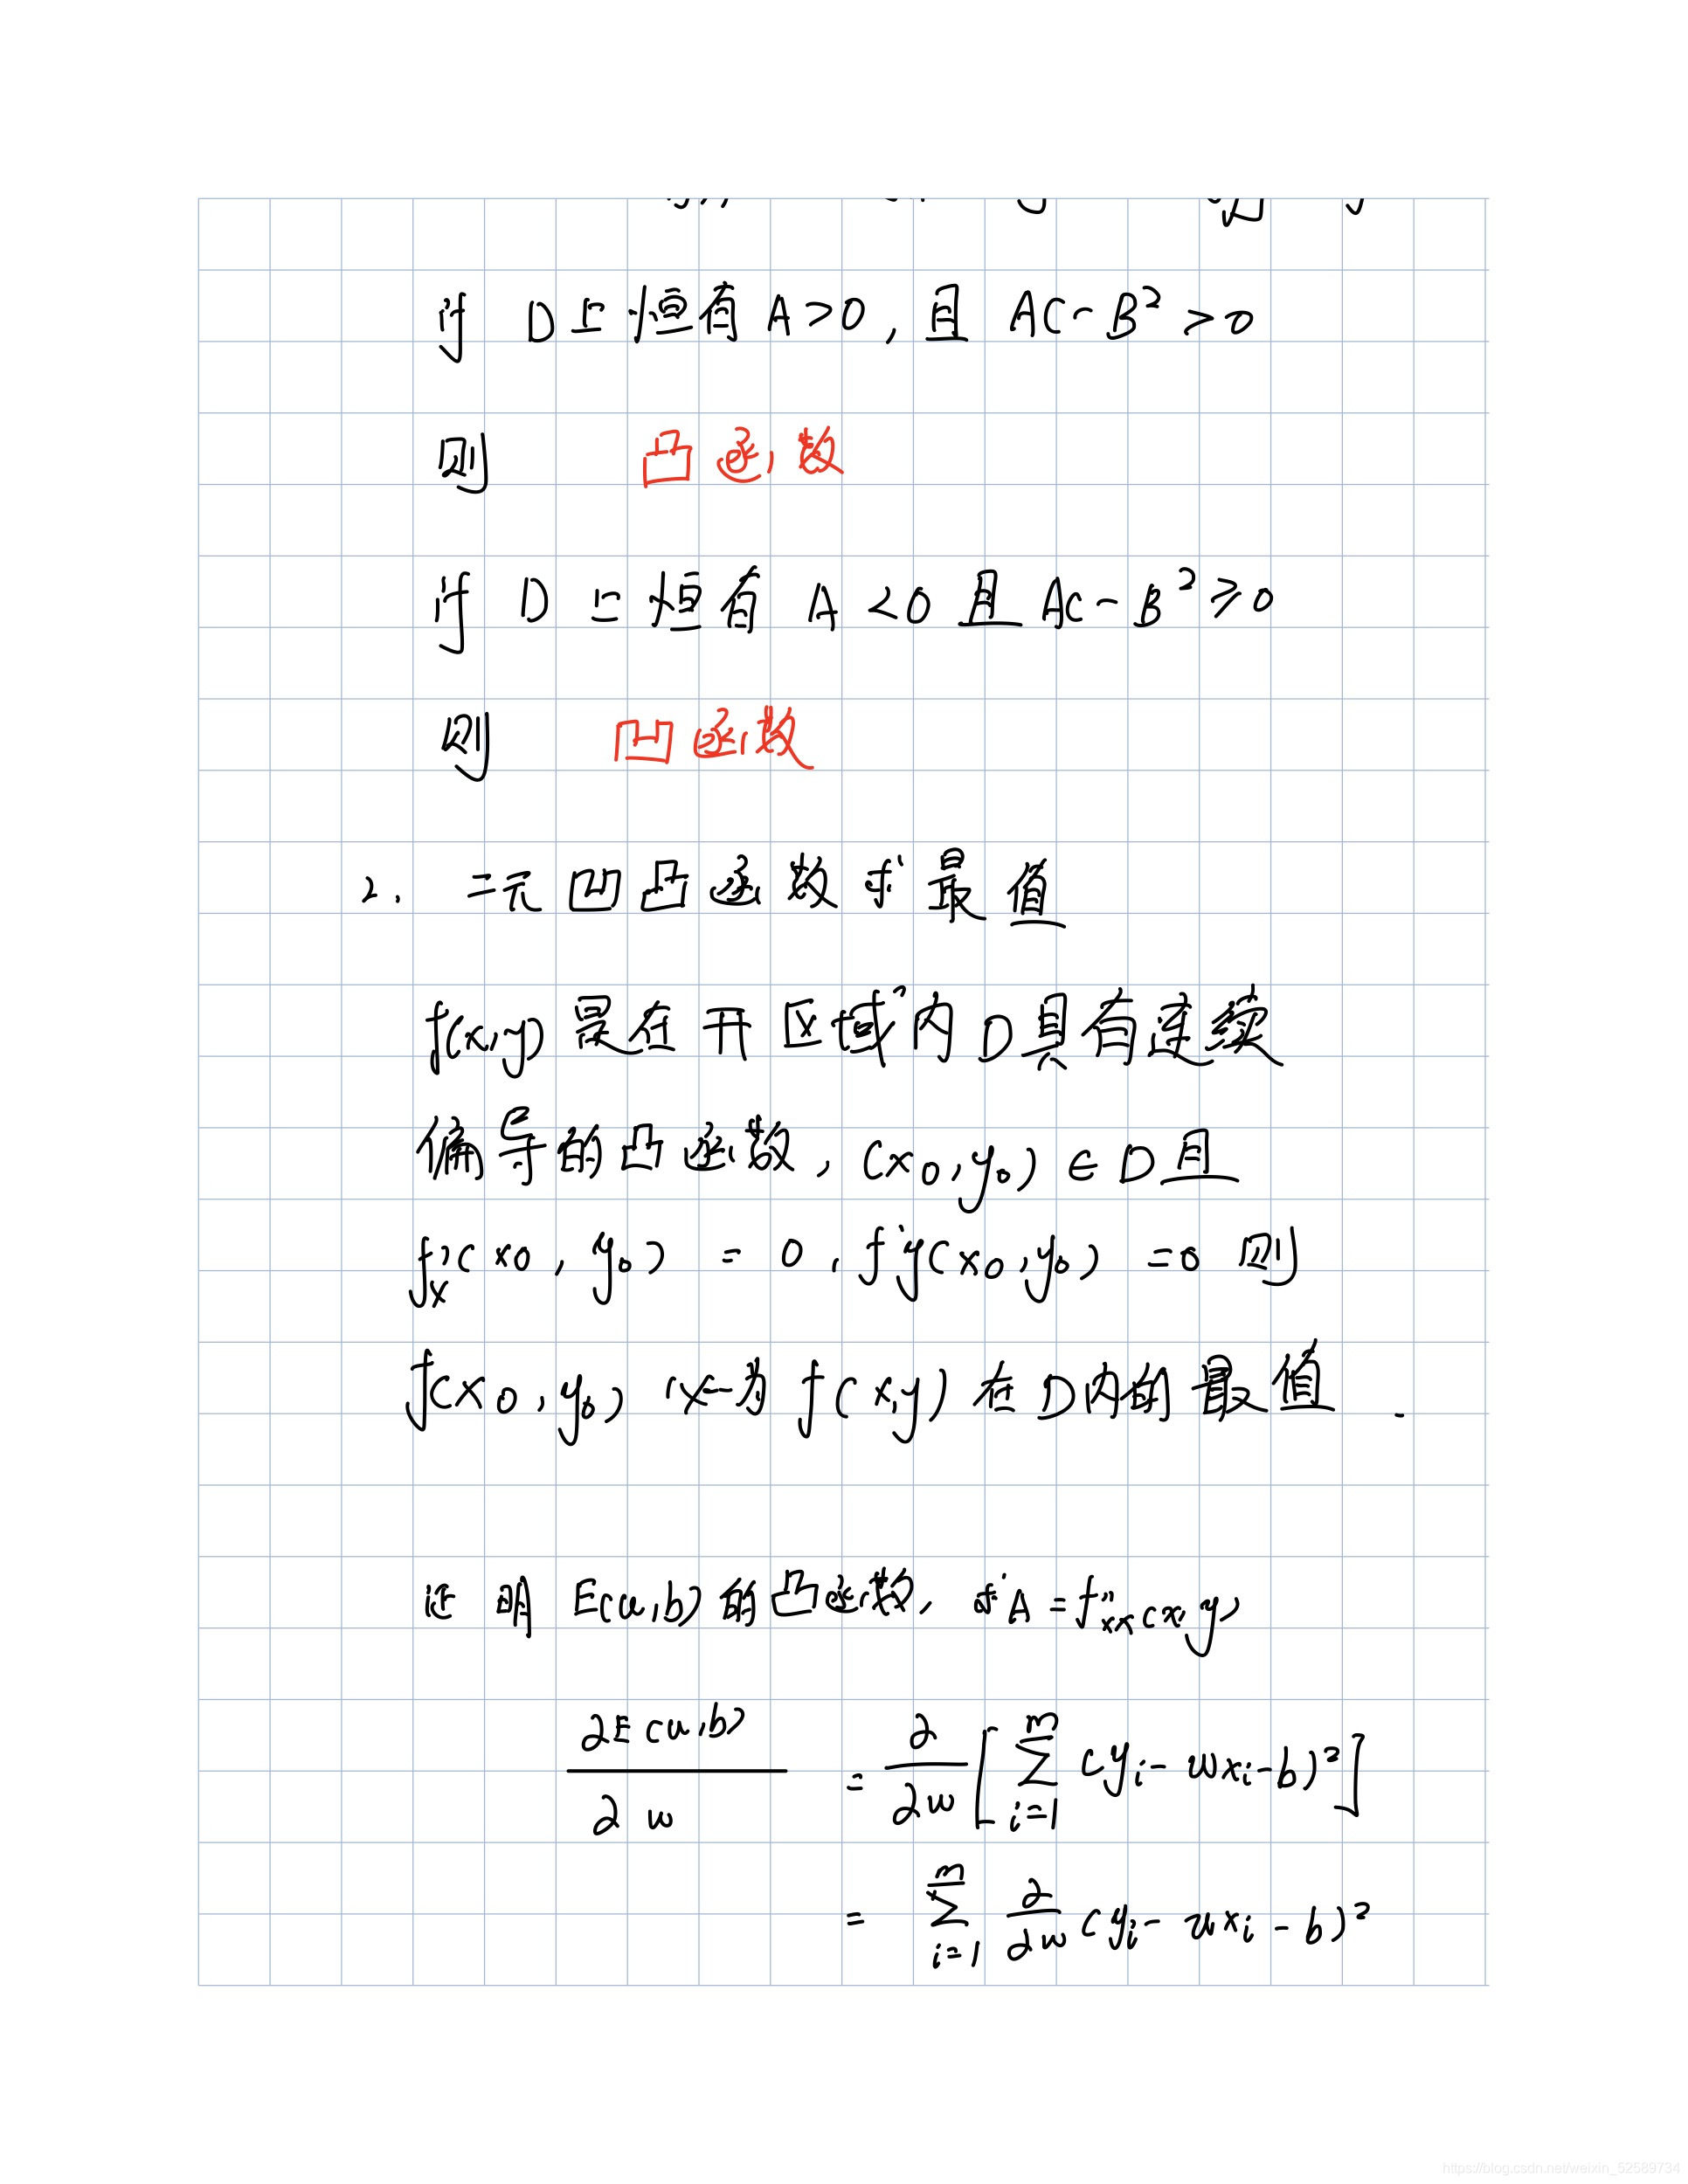 if D上恒有 A>0, 且 AC-B²>0
则 凸函数
if D上恒有 A<0 且 AC-B²≥0
则 凹函数
2. 二元凹凸函数求最值
f(x,y)是在开区域内D具有连续
偏导的凸函数, (x0,y0)∈D且
f'x(x0,y0)=0, f'y(x0,y0)=0 则
f(x0,y0) 为f(x,y)在D内的最值.
证明 E(w,b)的凸函数, 求A=f''xx(x,y)
∂E(w,b)/∂w = ∂/∂w[∑_{i=1}^{m}(yi-wxi-b)²]
= ∑_{i=1}^{m} ∂/∂w(yi-wxi-b)²
https://blog.csdn.net/weixin_52589734